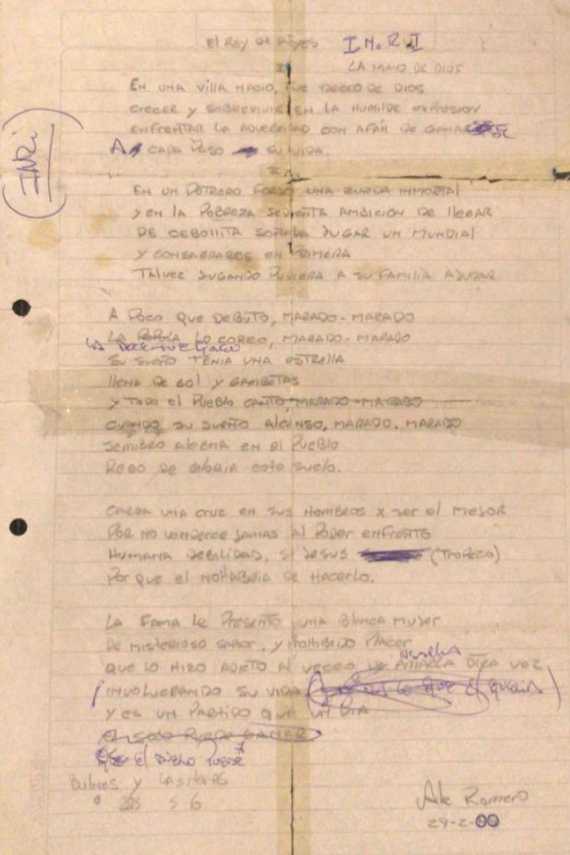 El Rey de Reyes
I.N.R.I
LA MANO DE DIOS
(INRi)
EN UNA Villa NACIO, FUE DESEO DE DIOS
CRECER y SOBREVIVIR EN LA HUMILDE EXPRESION
ENFRENTAR LA ADVERSIDAD CON AFÁN DE GANARSE
A CADA PASO SU VIDA.
EN UN POTRERO FORJO UNA ZURDA INMORTAL
y EN LA POBREZA SEDIENTA AMBICION DE llEGAR
DE CEBOLLITA SOÑABA JUGAR UN MUNDIAL
Y CONSAGRARSE EN PRIMERA
TALVEZ JUGANDO PUDIERA A SU FAMILIA AYUDAR
A POCO QUE DEBUTO, MARADO-MARADO
LA lo COREO, MARADO-MARADO
LA DOCE FUE QUIEN
SU SUEÑO TENIA UNA ESTRELLA
LLENA DE GOL y GAMBETAS
y TODO EL PUEBLO CANTO, MARADO-MARADO
CUANDO SU SUEÑO ALCANSO, MARADO, MARADO
SEMBRO ALEGRIA EN EL PUEBLO
REGO DE GLORIA ESTE SUELO.
CARGA UNA CRUZ EN SUS HOMBROS X SER EL MEJOR
POR NO VENDERCE JAMAS AL PODER ENFRENTO
HUMANA DEBILIDAD, SI JESUS (TROPEZO)
POR QUE EL NO HABRIA DE HACERLO.
LA FAMA LE PRESENTO UNA BLANCA MUJER
DE MISTERIOSO SABOR, y PROHIBIDO PLACER
QUE LO HIZO ADICTO AL DESEO DE USARLA OTRA VEZ
INVOLUCRANDO SU VIDA
y ES UN PARTIDO QUE UN DIA
EL SOLO PUEDA GANAR
Ale Romero
29-2-00